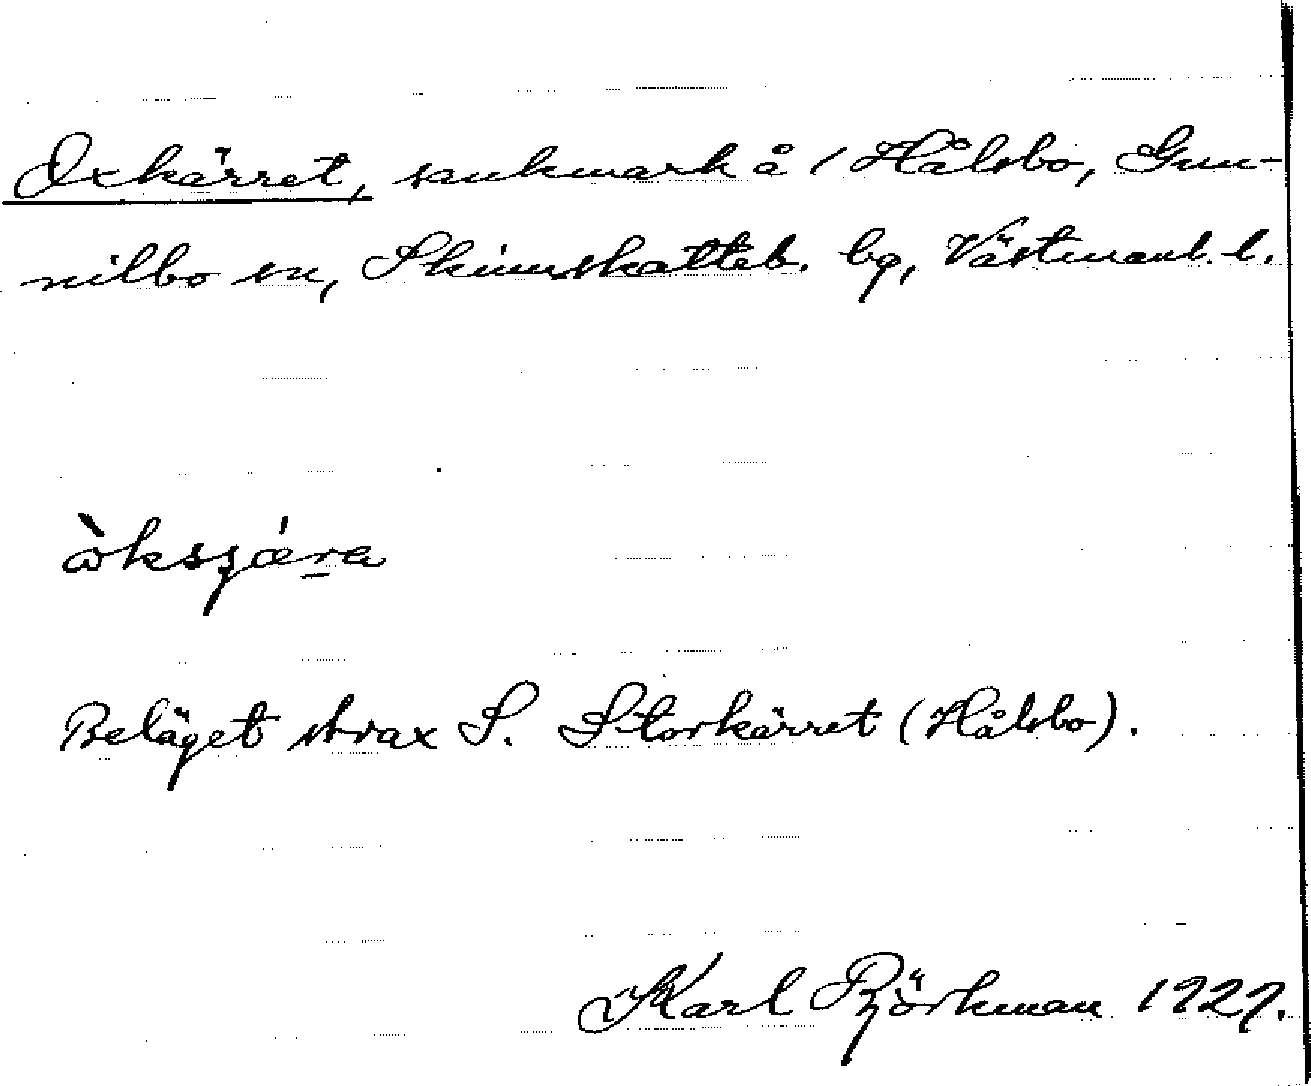 Oxkärret, sankmark å / Hålsbo, Gun-
nilbo sn, Skinnskatteb. bg, Västmanl. l.
Beläget strax S. Storkärret (Hålsbo).
Karl Björkman 1927.